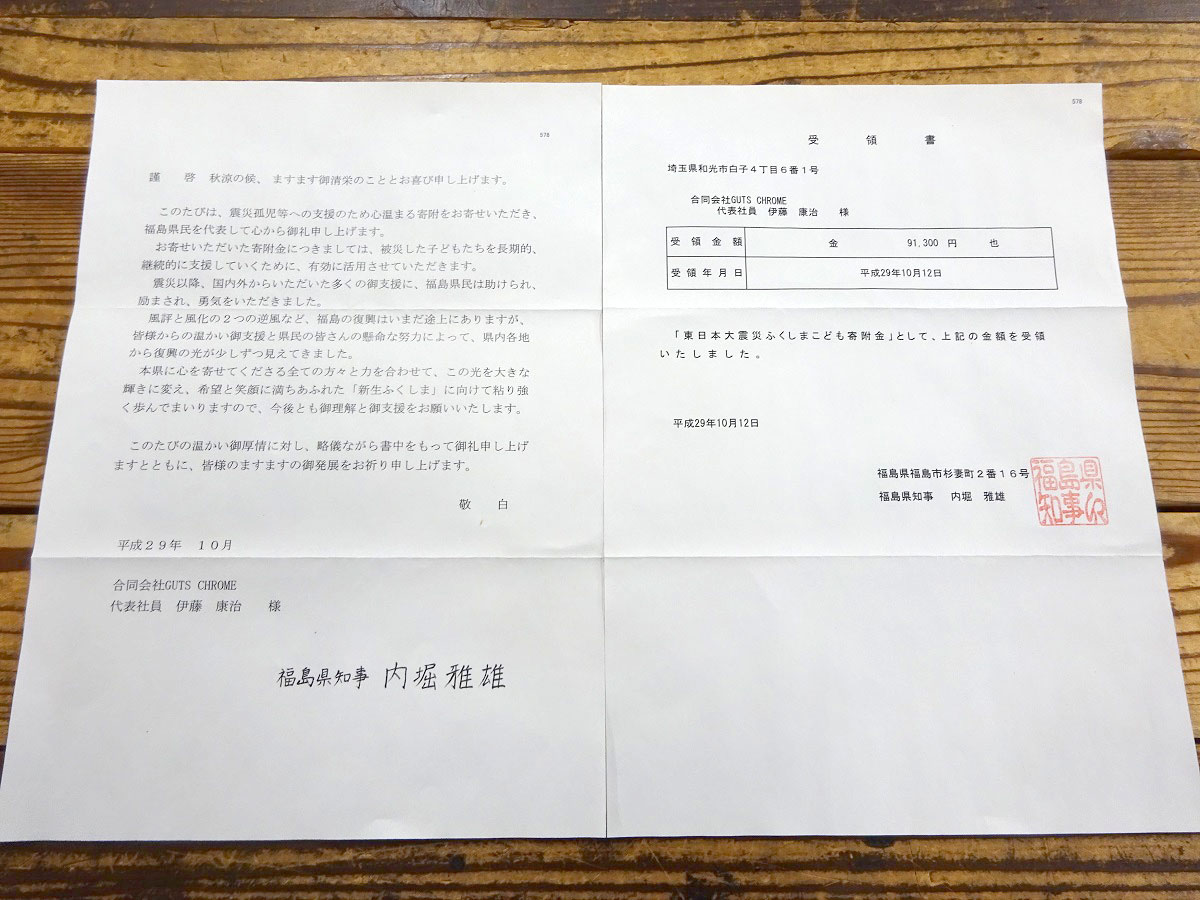 578
謹　啓　秋涼の候、ますます御清栄のこととお喜び申し上げます。
このたびは、震災孤児等への支援のため心温まる寄附をお寄せいただき、
福島県民を代表して心から御礼申し上げます。
お寄せいただいた寄附金につきましては、被災した子どもたちを長期的、
継続的に支援していくために、有効に活用させていただきます。
震災以降、国内外からいただいた多くの御支援に、福島県民は助けられ、
励まされ、勇気をいただきました。
風評と風化の２つの逆風など、福島の復興はいまだ途上にありますが、
皆様からの温かい御支援と県民の皆さんの懸命な努力によって、県内各地
から復興の光が少しずつ見えてきました。
本県に心を寄せてくださる全ての方々と力を合わせて、この光を大きな
輝きに変え、希望と笑顔に満ちあふれた「新生ふくしま」に向けて粘り強
く歩んでまいりますので、今後とも御理解と御支援をお願いいたします。
このたびの温かい御厚情に対し、略儀ながら書中をもって御礼申し上げ
ますとともに、皆様のますますの御発展をお祈り申し上げます。
敬　白
平成２９年　１０月
合同会社GUTS CHROME
代表社員　伊藤　康治　様
福島県知事 内堀雅雄
578
受　領　書
埼玉県和光市白子４丁目６番１号
合同会社GUTS CHROME
代表社員　伊藤　康治　様
受領金額　金　91,300 円　也
受領年月日　平成29年10月12日
「東日本大震災ふくしまこども寄附金」として、上記の金額を受領
いたしました。
平成29年10月12日
福島県福島市杉妻町２番１６号
福島県知事　内堀　雅雄
福島県
知事印